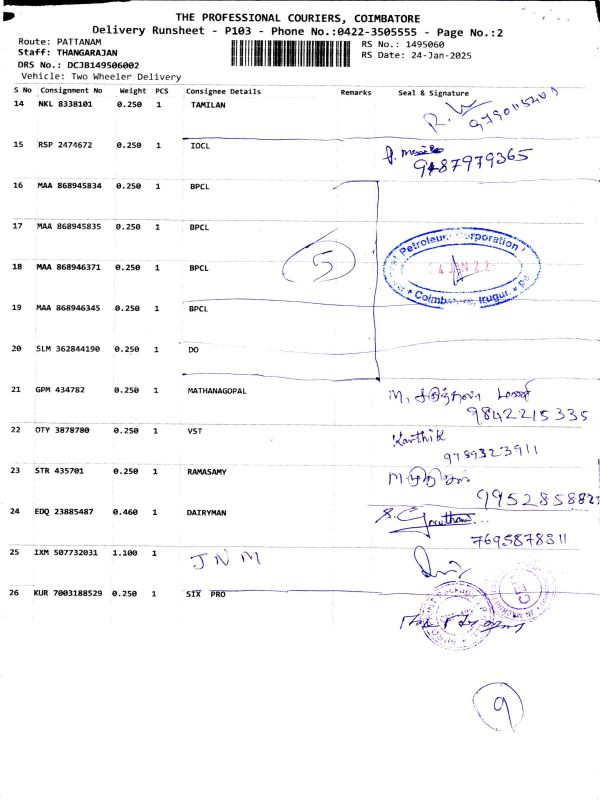 THE PROFESSIONAL COURIERS, COIMBATORE
Delivery Runsheet - P103 - Phone No.:0422-3505555 - Page No.:2
Route: PATTANAM RS No.: 1495060
Staff: THANGARAJAN RS Date: 24-Jan-2025
DRS No.: DCJB149506002
Vehicle: Two Wheeler Delivery
S No Consignment No Weight PCS Consignee Details Remarks Seal & Signature
14 NKL 8338101 0.250 1 TAMILAN
15 RSP 2474672 0.250 1 IOCL
9487979365
16 MAA 868945834 0.250 1 BPCL
17 MAA 868945835 0.250 1 BPCL
Petroleum Corporation
5
18 MAA 868946371 0.250 1 BPCL
Coimbatore, Irugur
19 MAA 868946345 0.250 1 BPCL
20 SLM 362844190 0.250 1 DO
21 GPM 434782 0.250 1 MATHANAGOPAL
9842215335
22 OTY 3878780 0.250 1 VST Karthik
9789323911
23 STR 435701 0.250 1 RAMASAMY
24 EDQ 23885487 0.460 1 DAIRYMAN S. Gowtham
7695878811
25 IXM 507732031 1.100 1 JNM
26 KUR 7003188529 0.250 1 SIX PRO
9